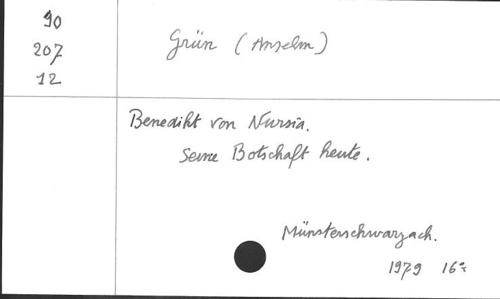 90
207
12
Grün (Anselm)
Benedikt von Nursia.
Seine Botschaft heute.
Münsterschwarzach.
1979 16°